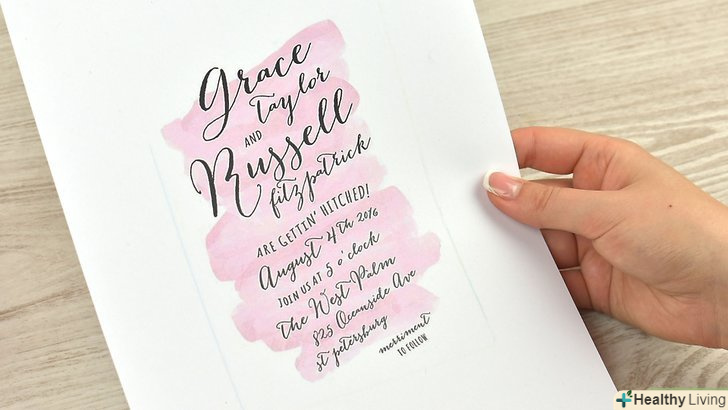 Grace
Taylor
AND
Russell
fitzpatrick
ARE GETTIN' HITCHED!
August 4th 2016
JOIN US AT 5 o'clock
the West Palm
825 Oceanside Ave
st petersburg
merriment
TO FOLLOW
Healthy Living